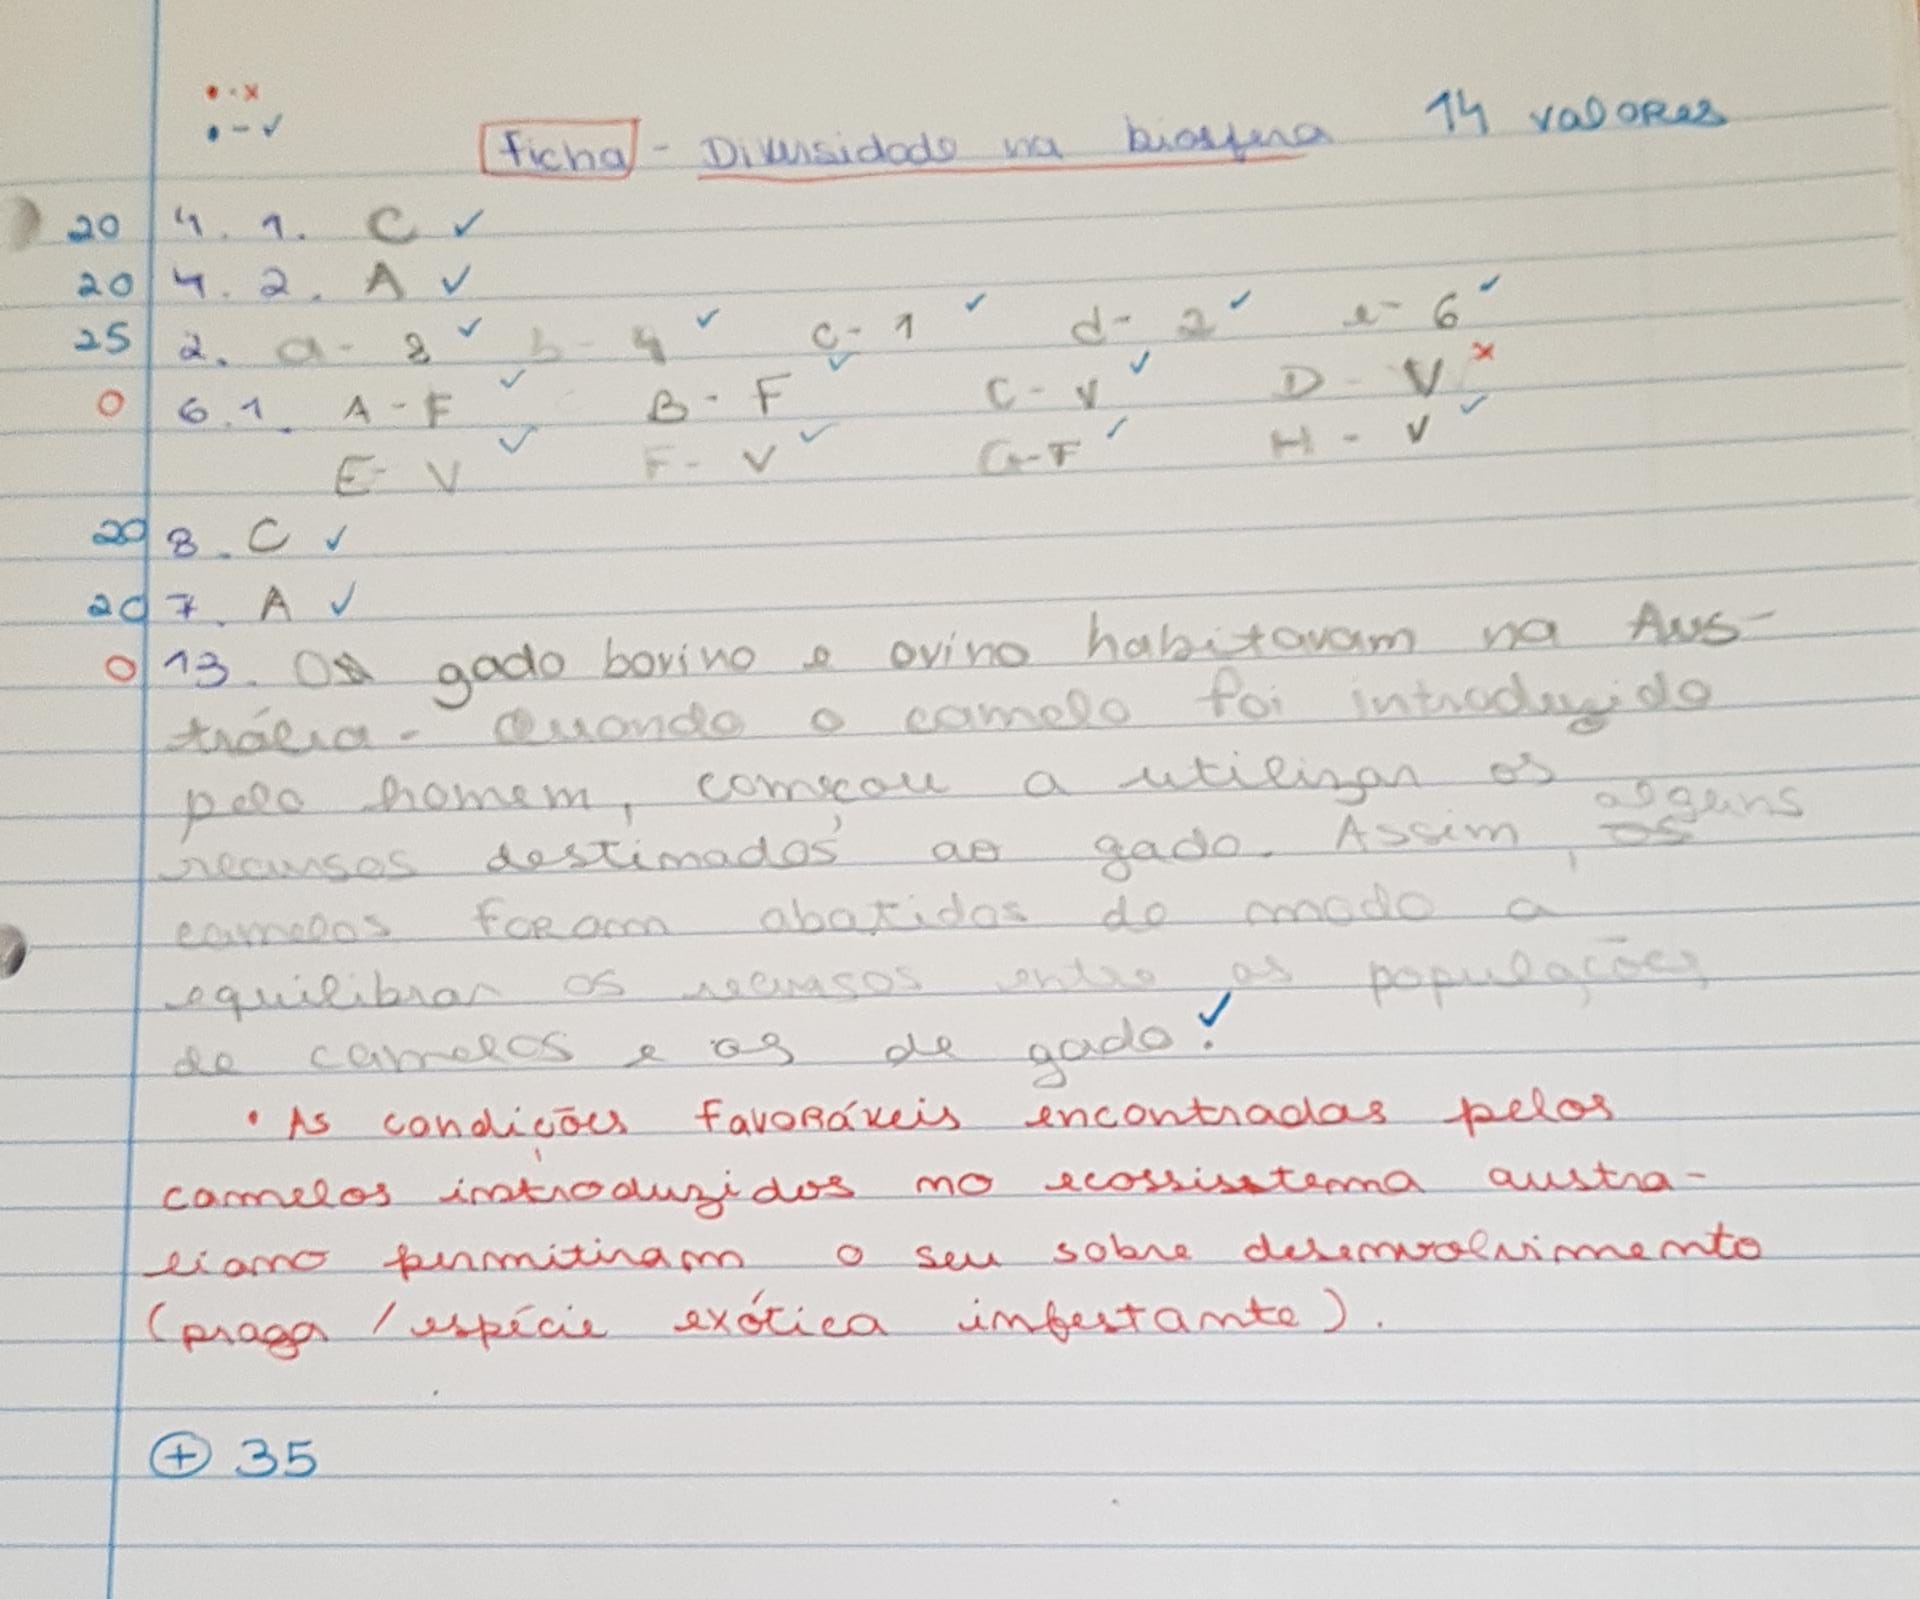 • - x
• - ✓
Ficha - Diversidade na biosfera 14 valores
20 4. 1. C ✓
20 4. 2. A ✓
25 2. a - 8 ✓ b - 4 ✓ c - 1 ✓ d - 2 ✓ e - 6 ✓
0 6. 1. A - F ✓ B - F ✓ C - V ✓ D - V x
E - V ✓ F - V ✓ G - F ✓ H - V ✓
20 8. C ✓
20 7. A ✓
0 13. Os gado bovino e ovino habitavam na Aus-
trália. Quando o camelo foi introduzido
pelo homem, começou a utilizar os
recursos destinados ao gado. Assim, os alguns
camelos foram abatidos de modo a
equilibrar os recursos entre as populações
de camelos e as de gado. ✓
• As condições favoráveis encontradas pelos
camelos introduzidos no ecossisstema austra-
liano permitiram o seu sobre desenvolvimento
(praga / espécie exótica infestante).
+ 35